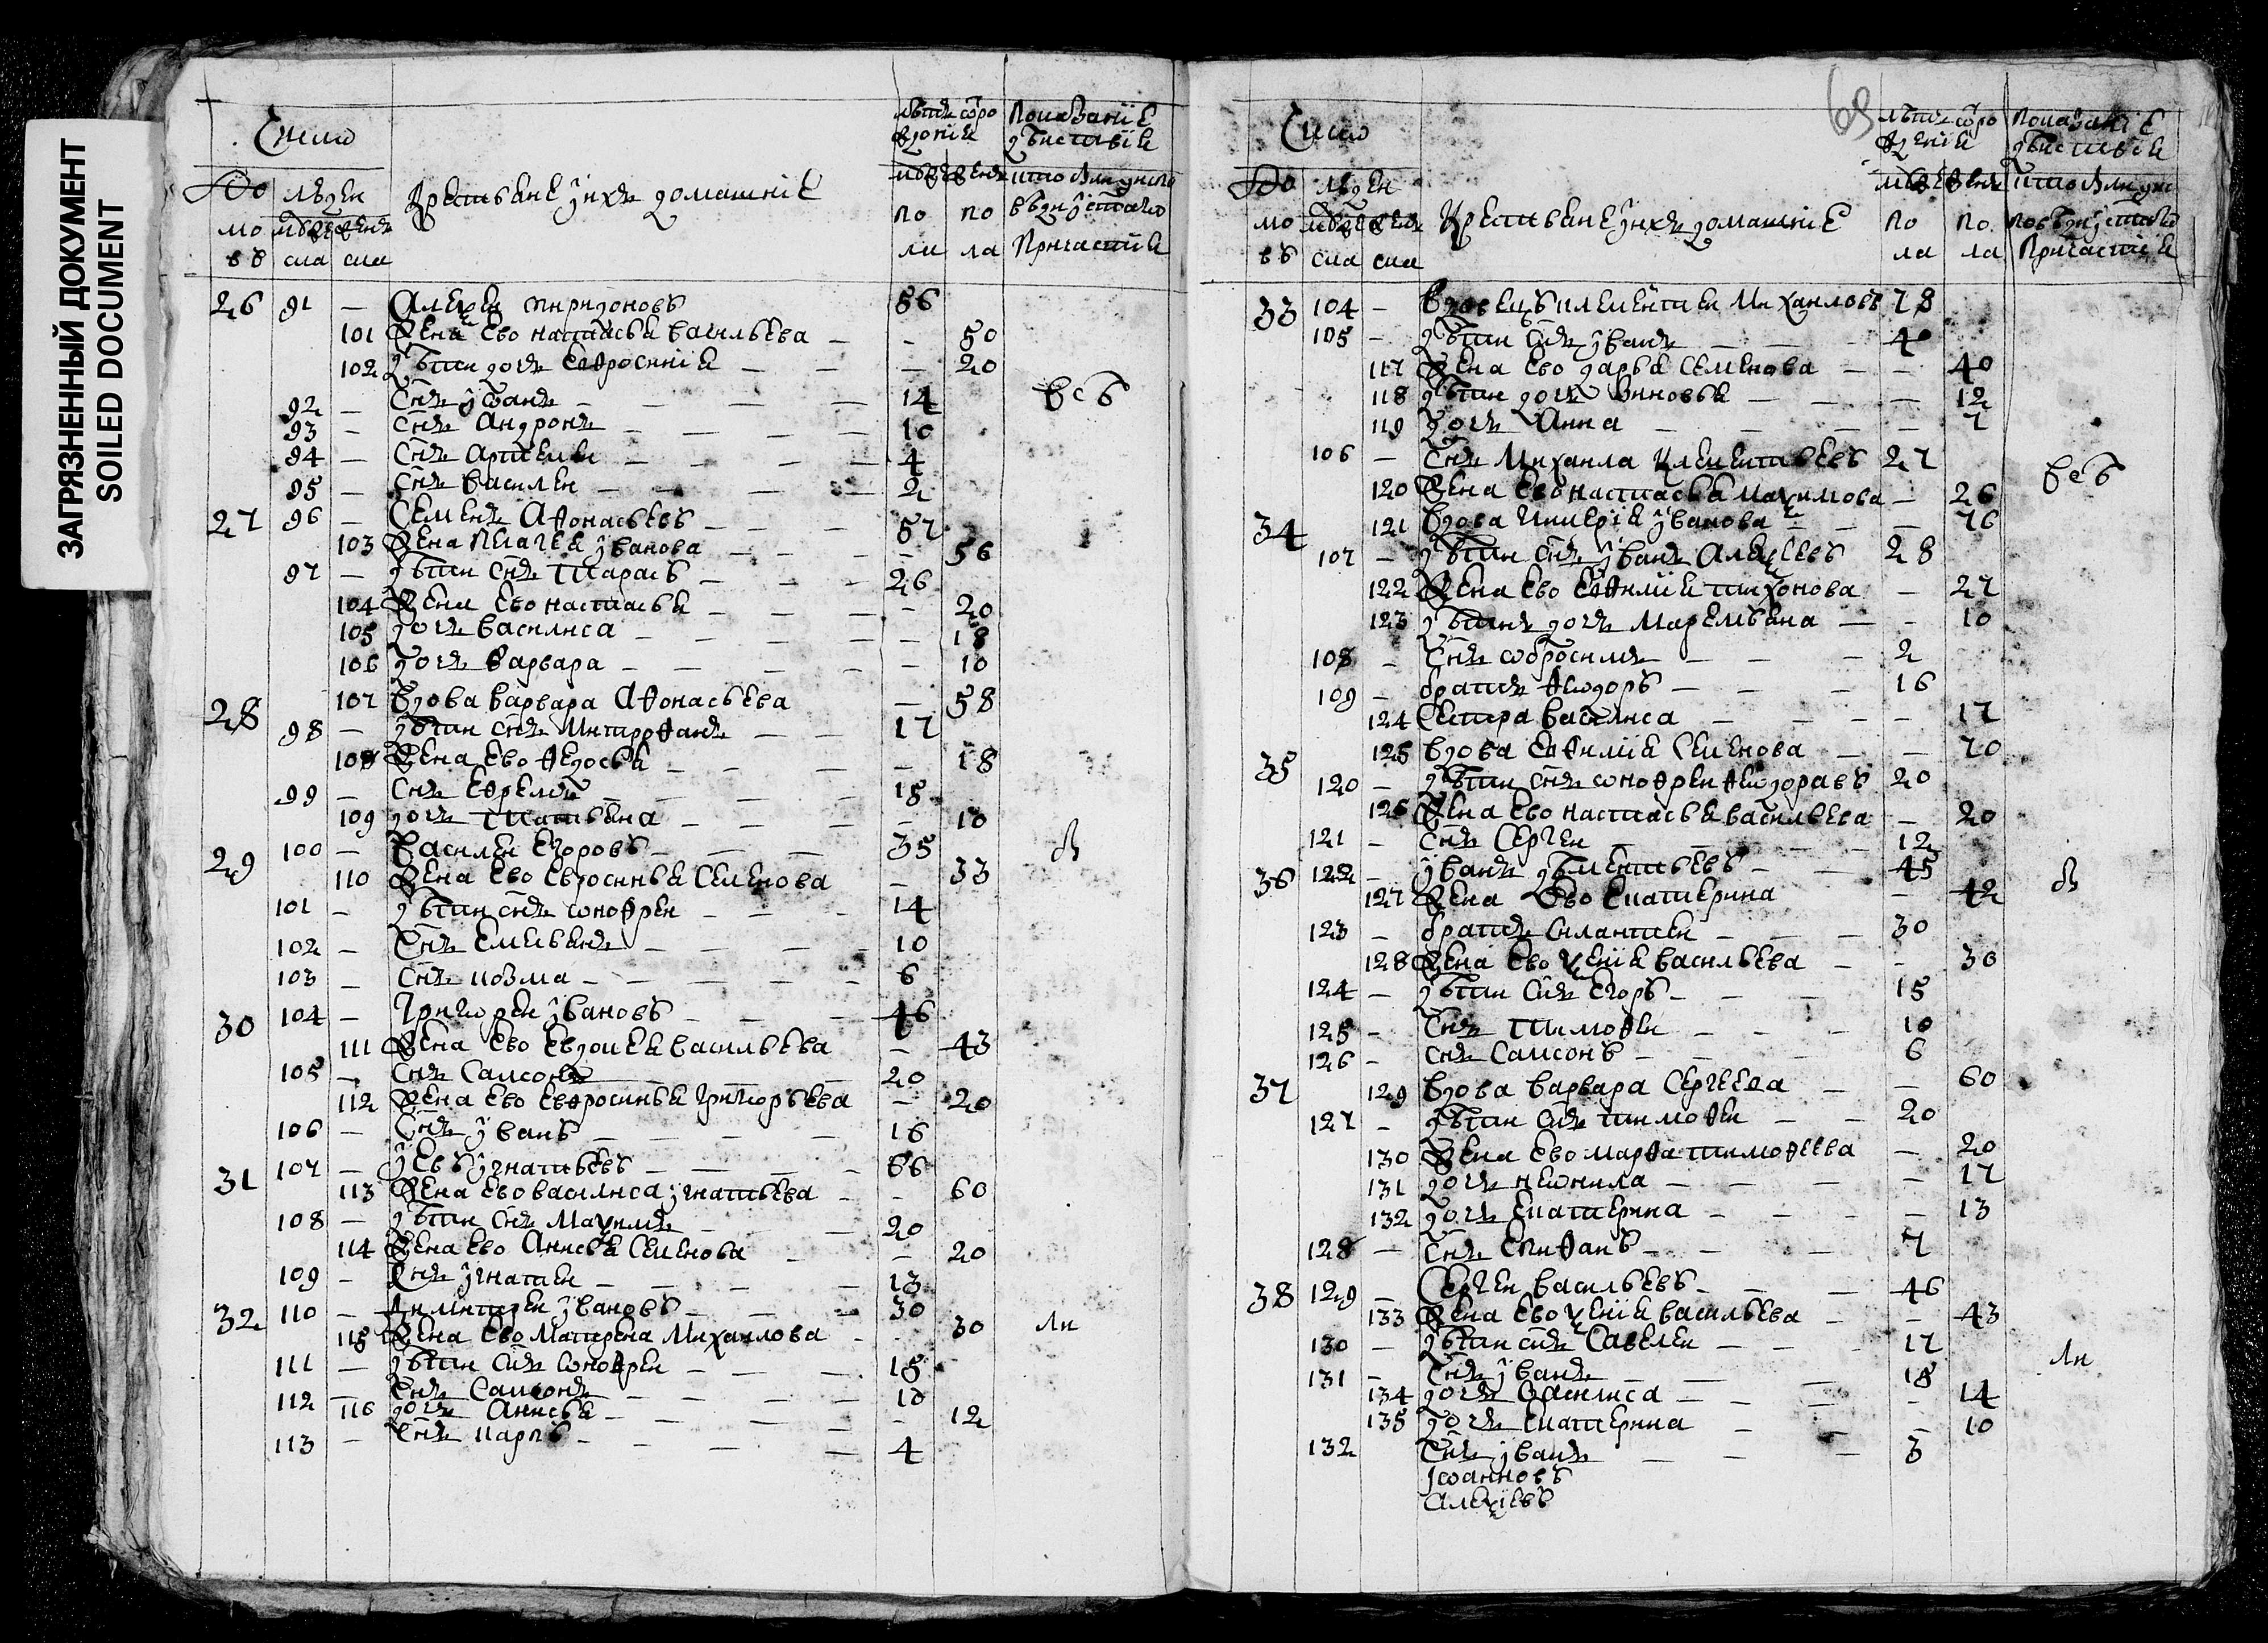 ЗАГРЯЗНЕННЫЙ ДОКУМЕНТ
SOILED DOCUMENT
Число
До мо въ
людеи
мужеска женска
Крестьяне и ихъ домашние
лѣтъ от рождения
муже женъ
по ла по ла
Показание действия
кто былъ у исповеди и святаго причастия
26 91 – Алеѯеи Спиридоновъ 56
101 Жена ево Настасья Васильева – – 50
102 дѣти дочь Ефросиния – – – 20
92 – Снъ Иванъ – – – – 14
всѣ
93 – Снъ Андронъ – – – – 10
94 – Снъ Артемеи – – – – 4
95 – Снъ Василеи – – – – 2
27 96 – Семенъ Афонасьевъ – – – 57
103 Жена Пелагея Иванова – – – – 56
97 – дѣти Снъ Тарасъ – – – 26
104 Жена ево Настасья – – – – 20
105 дочь Василиса – – – – – 18
106 дочь Варвара – – – – – 10
28 107 Вдова Варвара Афонасьева – 58
98 – дѣти снъ Митрофанъ – – 17
108 Жена ево Федосья – – – – 18
99 – Снъ Ефремъ – – – – 15
109 дочь Татьяна – – – – – 10
29 100 – Василеи Егоровъ – – – 35
110 Жена ево Евросинья Семенова – 33
101 – дѣти снъ Онофреи – – – 14
102 – Снъ Емельянъ – – – – 10
103 – Снъ Козма – – – – – 6
30 104 – Григореи Ивановъ – – – 46
111 Жена ево Евдокея Васильева – 43
105 – Снъ Самсонъ – 20
112 Жена ево Евфросинья Григорьева – 20
106 – Снъ Иванъ – – – – 16
31 107 – Иевъ Игнатьевъ – – – – 66
113 Жена ево Василиса Игнатьева – – 60
108 – дѣти Снъ Маѯимъ – – – 20
114 Жена ево Анисья Семенова – – 20
109 – Снъ Игнатеи – – – – – 13
32 110 – Димитреи Ивановъ – – – 30
115 Жена ево Матрена Михаилова – – 30
ли
111 – дѣти Снъ Онофреи – – – 15
112 – Снъ Самсонъ – – – 10
116 дочь Анисья – – – – – 12
113 – Снъ Карпъ – – – – – 4
Число
До мо въ
людеи
мужеска женска
Крестьяне и ихъ домашние
лѣтъ от рождения
муже женъ
по ла по ла
Показание действия
кто былъ у исповеди и святаго причастия
33 104 – Вдовецъ Клементеи Михаиловъ 78
105 – дѣти Снъ Иванъ – – – 40
117 Жена ево Дарья Семенова – – 40
118 дѣти дочь Зиновья – – – – 12
119 дочь Анна – – – – 7
106 – Снъ Михаила Клементьевъ 27
всѣ
120 Жена ево Настасья Маѯимова – 26
34 121 Вдова Гликерия Иванова – – – 76
107 – дѣти снъ Иванъ Алеѯеевъ 28
122 Жена ево Ефимия Тихонова – 27
123 дѣти дочь Маремьяна – – 10
108 – Снъ Обросимъ – – – 2
109 – братъ Феодоръ – – – 16
124 Сестра Василиса – – – – 17
35 125 Вдова Ефимия Семенова – – 70
120 – дѣти снъ Онофреи Феодоравъ 20
126 Жена ево Настасья Васильева – 20
121 – Снъ Сергеи – – – – 12
36 122 – Иванъ Дѣментьевъ – – 45
127 Жена ево Екатерина – 42
123 – братъ Силантеи – – – 30
128 Жена ево Ѯения Васильева – – 30
124 – дѣти Снъ Егоръ – – – 15
125 – Снъ Тимофеи – – – 10
126 – Снъ Самсонъ – – – 6
37 129 Вдова Варвара Сергеева – – 60
127 – дѣти Снъ Тимофеи – – 20
130 Жена ево Марфа Тимофеева – 20
131 дочь Неонила – – – – 17
132 дочь Екатерина – – – – 13
128 – Снъ Епифанъ – – – 7
38 129 – Сергеи Васильевъ – – – 46
133 Жена ево Ѯения Васильева – – 43
130 – дѣти снъ Савелеи – – – 17
ли
131 – Снъ Иванъ – – – 15
134 дочь Василиса – – – – 14
135 дочь Екатерина – – 10
132 Снъ Иванъ – – – 3
Иоанновъ
Алеѯиевъ